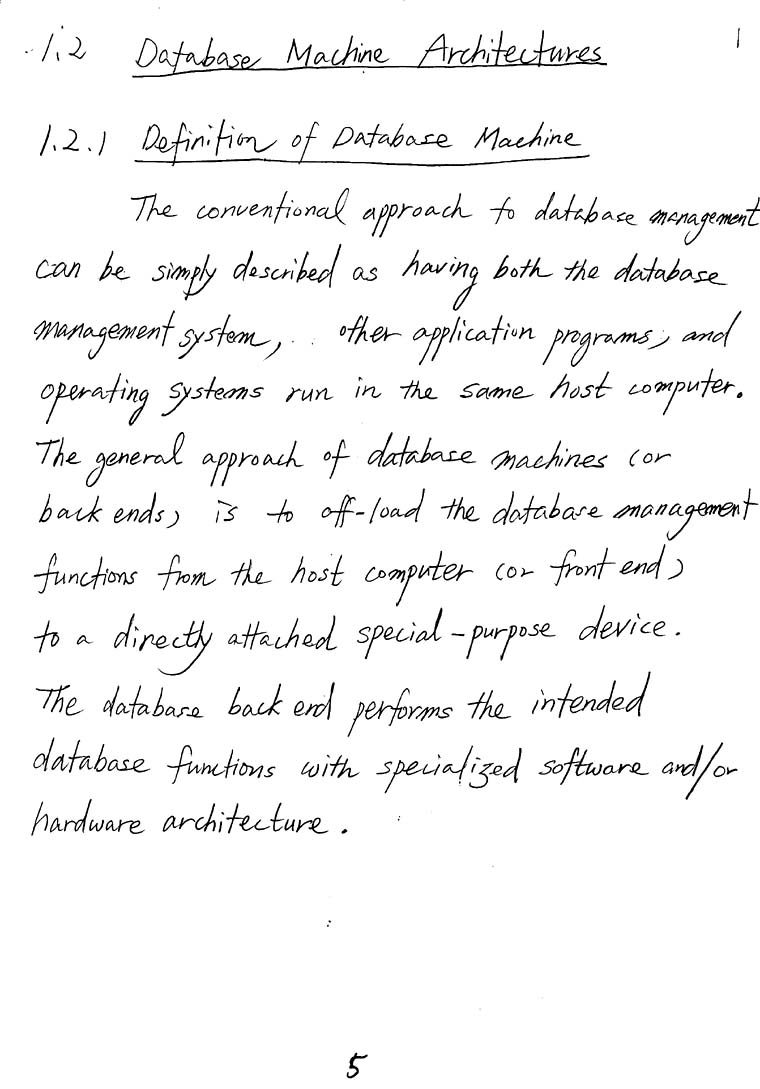 1.2 Database Machine Architectures
1
1.2.1 Definition of Database Machine
The conventional approach to database management
can be simply described as having both the database
management system, other application programs, and
operating systems run in the same host computer.
The general approach of database machines (or
back ends) is to off-load the database management
functions from the host computer (or front end)
to a directly attached special-purpose device.
The database back end performs the intended
database functions with specialized software and/or
hardware architecture.
5